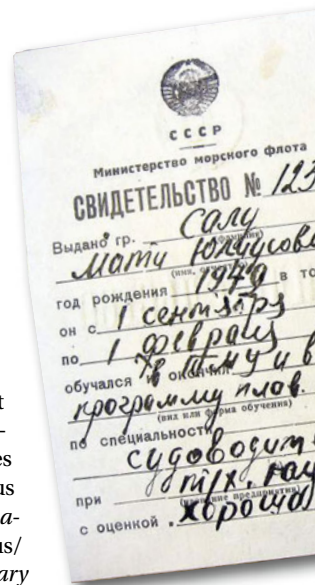 СССР
Министерство морского флота
СВИДЕТЕЛЬСТВО № 123
Выдано гр. Салу
Мати Юлиусови
год рождения 1949 в то
он с 1 сентября
по 1 февраля
обучался и окончил в и в
программу плав.
(вид или форма обучения)
по специальности
судоводит
при
с оценкой хорошо
t
-
es
us
a-
us/
ary